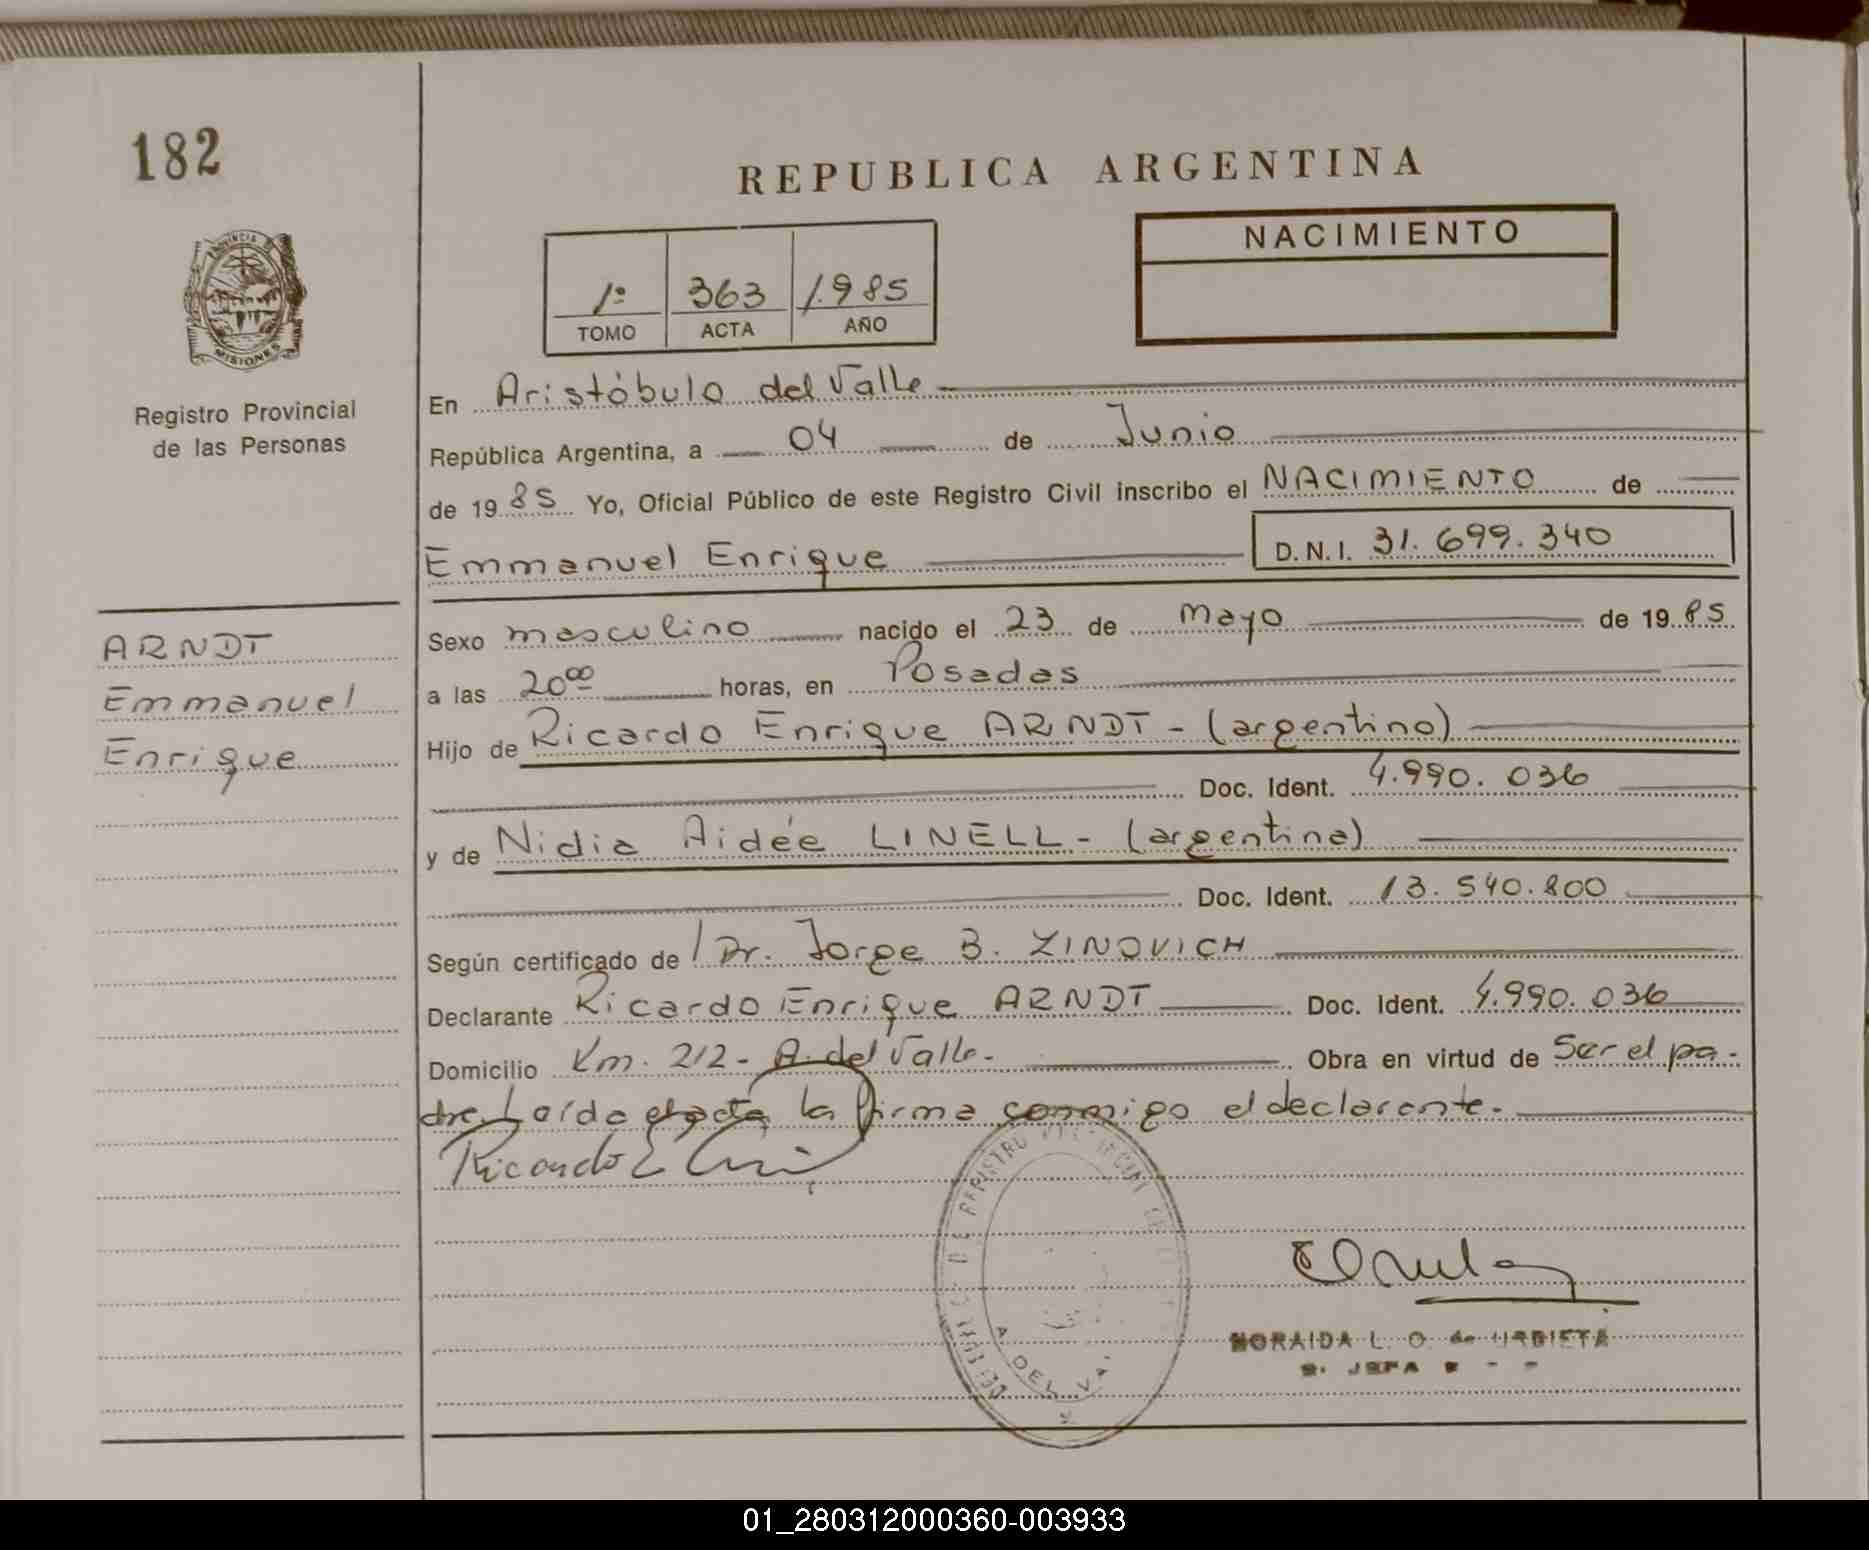 182
REPUBLICA ARGENTINA
PROVINCIA DE
MISIONES
Registro Provincial
de las Personas
1º 363 1.985
TOMO ACTA AÑO
NACIMIENTO
En Aristóbulo del Valle
República Argentina, a 04 de Junio
de 1985 Yo, Oficial Público de este Registro Civil inscribo el NACIMIENTO de
Emmanuel Enrique D.N.I. 31.699.340
ARNDT
Emmanuel
Enrique
Sexo masculino nacido el 23 de Mayo de 1985
a las 20ºº horas, en Posadas
Hijo de Ricardo Enrique ARNDT - (argentino)
Doc. Ident. 4.990.036
y de Nidia Aidée LINELL - (argentina)
Doc. Ident. 13.540.800
Según certificado de Dr. Jorge B. ZINOVICH
Declarante Ricardo Enrique ARNDT Doc. Ident. 4.990.036
Domicilio Km. 212 - A. del Valle. Obra en virtud de Ser el pa-
dre. Leída el acta la firma conmigo el declarante.
Ricardo E
REGISTRO
A. DEL VA
NORAIDA L. O. de URBIETA
JEFA
01_280312000360-003933